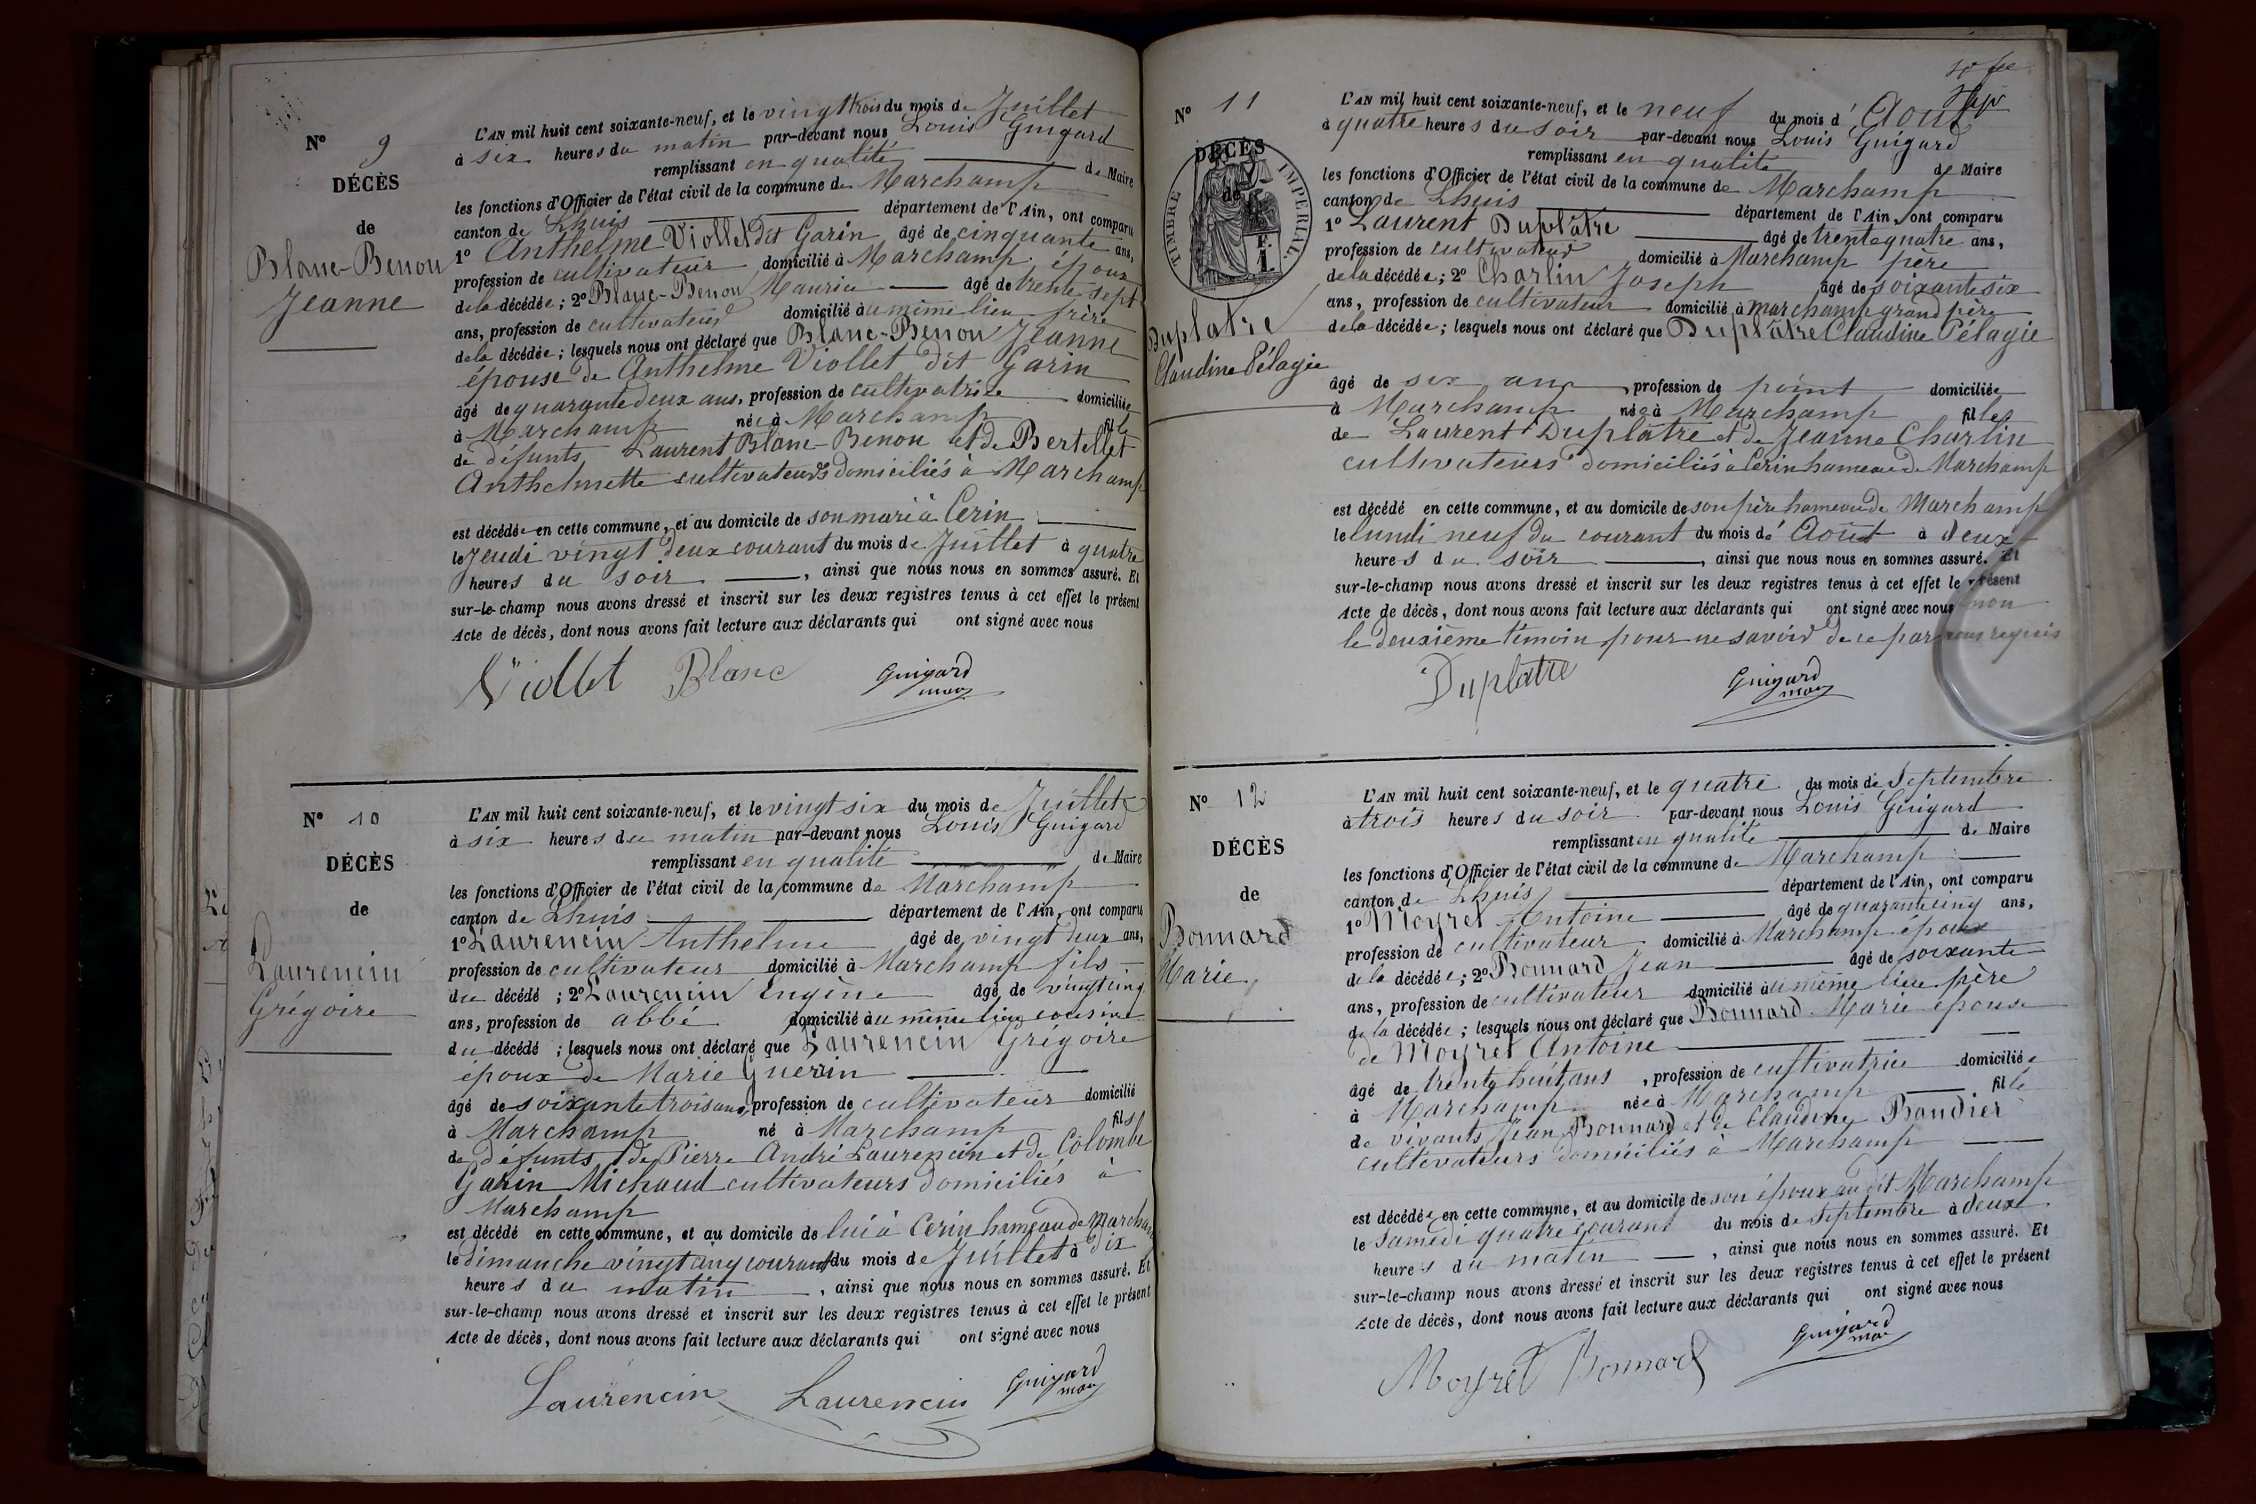 N° 9
DÉCÈS
de
Blanc-Benon
Jeanne
L'AN mil huit cent soixante-neuf, et le vingt trois du mois de Juillet
à six heures du matin par-devant nous Louis Guigard
remplissant en qualité de Maire
les fonctions d'Officier de l'état civil de la commune de Marchamp
canton de Lhuis département de l'Ain, ont comparu
1° Anthelme Viollet dit Garin âgé de cinquante ans,
profession de cultivateur domicilié à Marchamp époux
de la décédée; 2° Blanc-Benon Maurice âgé de trente sept
ans, profession de cultivateur domicilié au même lieu frère
de la décédée; lesquels nous ont déclaré que Blanc-Benon Jeanne
épouse de Anthelme Viollet dit Garin
âgé de quarante deux ans, profession de cultivatrice domiciliée
à Marchamp née à Marchamp fille
de défunts Laurent Blanc-Benon et de Bertellet
Anthelmette cultivateurs domiciliés à Marchamp
est décédée en cette commune, et au domicile de son mari à Cerin
le Jeudi vingt deux courant du mois de Juillet à quatre
heures du soir, ainsi que nous nous en sommes assuré. Et
sur-le-champ nous avons dressé et inscrit sur les deux registres tenus à cet effet le présent
Acte de décès, dont nous avons fait lecture aux déclarants qui ont signé avec nous
Viollet Blanc Guigard
N° 10
DÉCÈS
de
Laurencin
Grégoire
L'AN mil huit cent soixante-neuf, et le vingt six du mois de Juillet
à six heures du matin par-devant nous Louis Guigard
remplissant en qualité de Maire
les fonctions d'Officier de l'état civil de la commune de Marchamp
canton de Lhuis département de l'Ain, ont comparu
1° Laurencin Anthelme âgé de vingt deux ans,
profession de cultivateur domicilié à Marchamp fils
du décédé; 2° Laurencin Eugène âgé de vingt cinq
ans, profession de abbé domicilié au même lieu cousin
du décédé; lesquels nous ont déclaré que Laurencin Grégoire
époux de Marie Guerin
âgé de soixante trois ans, profession de cultivateur domicilié
à Marchamp né à Marchamp fils
de défunts de Pierre André Laurencin et de Colombe
Garin Michaud cultivateurs domiciliés à
Marchamp
est décédé en cette commune, et au domicile de lui à Cerin hameau de Marchamp
le dimanche vingt cinq courant du mois de Juillet à dix
heures du matin, ainsi que nous nous en sommes assuré. Et
sur-le-champ nous avons dressé et inscrit sur les deux registres tenus à cet effet le présent
Acte de décès, dont nous avons fait lecture aux déclarants qui ont signé avec nous
Laurencin Laurencin Guigard
N° 11
DÉCÈS
de
TIMBRE IMPÉRIAL
Duplatre
Claudine Pélagie
L'AN mil huit cent soixante-neuf, et le neuf du mois d'Aout
à quatre heures du soir par-devant nous Louis Guigard
remplissant en qualité de Maire
les fonctions d'Officier de l'état civil de la commune de Marchamp
canton de Lhuis département de l'Ain, ont comparu
1° Laurent Duplâtre âgé de trente quatre ans,
profession de cultivateur domicilié à Marchamp père
de la décédée; 2° Charlin Joseph âgé de soixante six
ans, profession de cultivateur domicilié à Marchamp grand père
de la décédée; lesquels nous ont déclaré que Duplâtre Claudine Pélagie
âgé de six ans, profession de point domiciliée
à Marchamp née à Marchamp filles
de Laurent Duplâtre et de Jeanne Charlin
cultivateurs domiciliés à Cerin hameau de Marchamp
est décédé en cette commune, et au domicile de son père hameau de Marchamp
le lundi neuf du courant du mois d'Août à deux
heures du soir, ainsi que nous nous en sommes assuré. Et
sur-le-champ nous avons dressé et inscrit sur les deux registres tenus à cet effet le présent
Acte de décès, dont nous avons fait lecture aux déclarants qui ont signé avec nous non
le deuxième témoin pour ne savoir de ce par nous requis
Duplatre Guigard
N° 12
DÉCÈS
de
Bonnard
Marie
L'AN mil huit cent soixante-neuf, et le quatre du mois de Septembre
à trois heures du soir par-devant nous Louis Guigard
remplissant en qualité de Maire
les fonctions d'Officier de l'état civil de la commune de Marchamp
canton de Lhuis département de l'Ain, ont comparu
1° Moyret Antoine âgé de quarante cinq ans,
profession de cultivateur domicilié à Marchamp époux
de la décédée; 2° Bonnard Jean âgé de soixante
ans, profession de cultivateur domicilié au même lieu père
de la décédée; lesquels nous ont déclaré que Bonnard Marie épouse
de Moyret Antoine
âgé de trente huit ans, profession de cultivatrice domiciliée
à Marchamp née à Marchamp fille
de vivants Jean Bonnard et de Claudine Baudier
cultivateurs domiciliés à Marchamp
est décédée en cette commune, et au domicile de son époux au dit Marchamp
le Samedi quatre courant du mois de Septembre à deux
heures du matin, ainsi que nous nous en sommes assuré. Et
sur-le-champ nous avons dressé et inscrit sur les deux registres tenus à cet effet le présent
Acte de décès, dont nous avons fait lecture aux déclarants qui ont signé avec nous
Moyret Bonnard Guigard